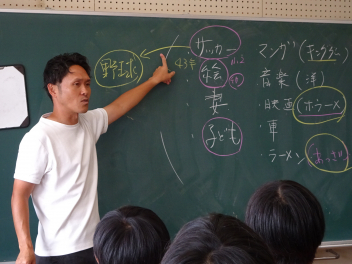 野球
サッカー
絵
車
子ども
マンガ(キングダム)
音楽(洋)
・映画(ホラー)
・車
・ラーメン(あっさり)